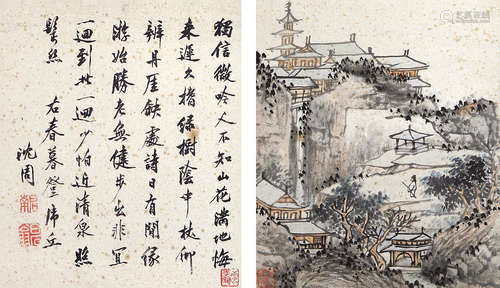 獨信微吟人不知山花滿地悔
來遲久揩綠樹陰中杖仰
辨丹崖缺處詩日有閒緣
游始勝老無健步出非宜
一迴到此一迴少怕近清泉照
髩絲 右春暮登虎丘
沈周